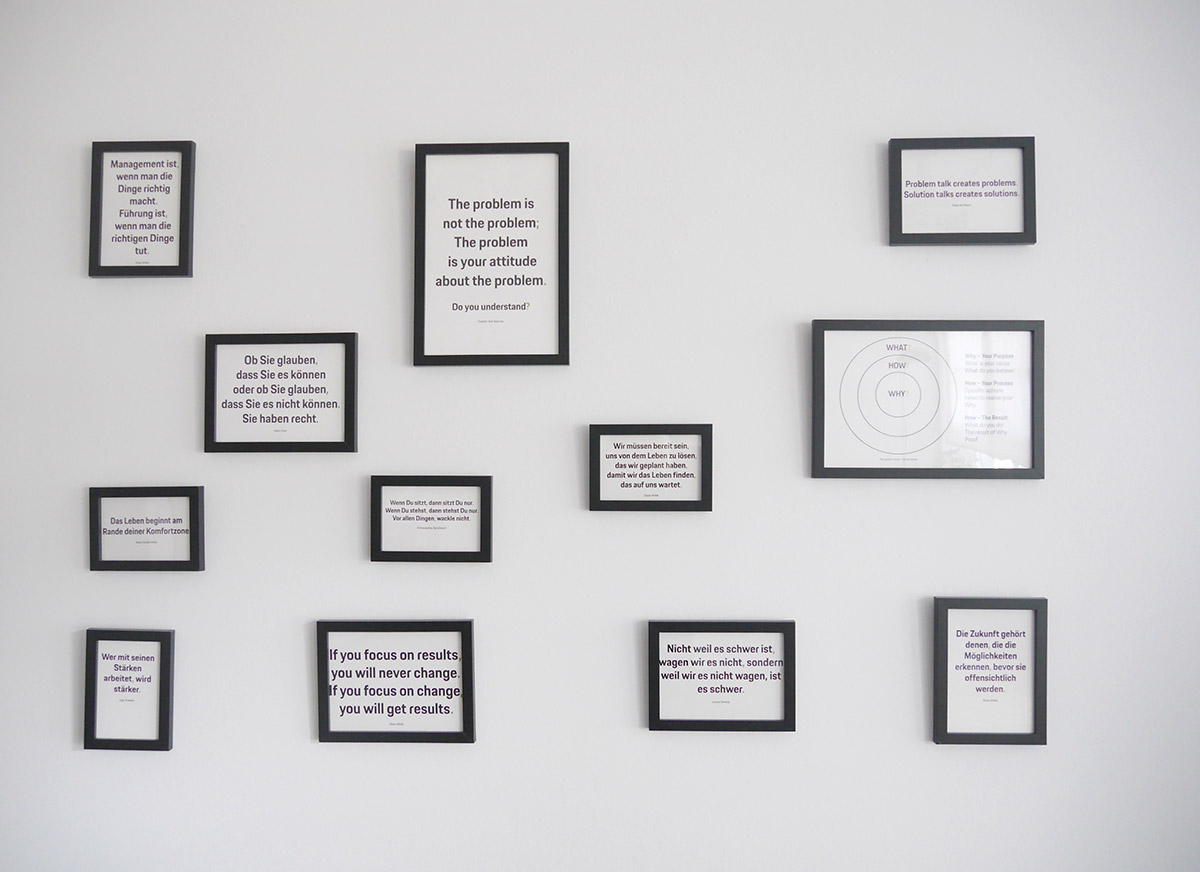 Management ist,
wenn man die
Dinge richtig
macht.
Führung ist,
wenn man die
richtigen Dinge
tut.
The problem is
not the problem;
The problem
is your attitude
about the problem.
Do you understand?
Problem talk creates problems.
Solution talks creates solutions.
Ob Sie glauben,
dass Sie es können
oder ob Sie glauben,
dass Sie es nicht können.
Sie haben recht.
WHAT
HOW
WHY
Why – Your Purpose
What is your cause
What do you believe?
How – Your Process
Specific actions
taken to realize your
Why.
How – The Result
What do you do?
The result of Why
Proof
Wir müssen bereit sein,
uns von dem Leben zu lösen,
das wir geplant haben,
damit wir das Leben finden,
das auf uns wartet.
Oscar Wilde
Das Leben beginnt am
Rande deiner Komfortzone
Wenn Du sitzt, dann sitzt Du nur.
Wenn Du stehst, dann stehst Du nur.
Vor allen Dingen, wackle nicht.
Wer mit seinen
Stärken
arbeitet, wird
stärker.
If you focus on results,
you will never change.
If you focus on change,
you will get results.
Nicht weil es schwer ist,
wagen wir es nicht, sondern
weil wir es nicht wagen, ist
es schwer.
Die Zukunft gehört
denen, die die
Möglichkeiten
erkennen, bevor sie
offensichtlich
werden.